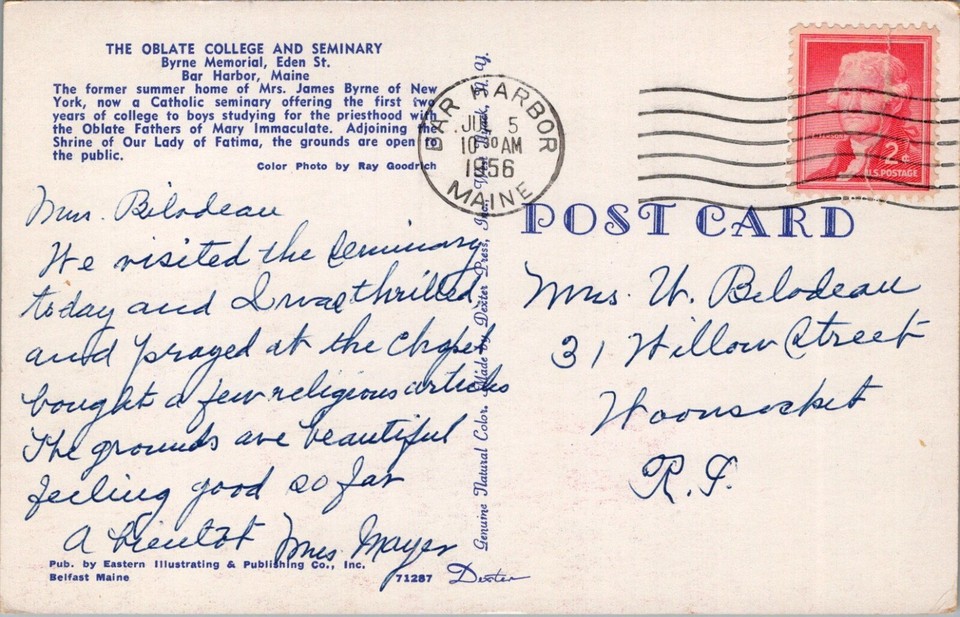 THE OBLATE COLLEGE AND SEMINARY
Byrne Memorial, Eden St.
Bar Harbor, Maine
The former summer home of Mrs. James Byrne of New
York, now a Catholic seminary offering the first two
years of college to boys studying for the priesthood with
the Oblate Fathers of Mary Immaculate. Adjoining the
Shrine of Our Lady of Fatima, the grounds are open to
the public.
Color Photo by Ray Goodrich
Mrs. Bilodeau
We visited the Seminary
today and I was thrilled
and prayed at the chapel
bought a few religious articles
The grounds are beautiful
feeling good so far
A bientot Mrs Mayer
Pub. by Eastern Illustrating & Publishing Co., Inc.
Belfast Maine
71287 Dexter
Genuine Natural Color. Made by Dexter Press, Inc., West Nyack, N. Y.
BAR HARBOR
JUL 5
10 30 AM
1956
MAINE
JEFFERSON
2¢
U.S. POSTAGE
POST CARD
Mrs. W. Bilodeau
31 Willow Street
Woonsocket
R.I.